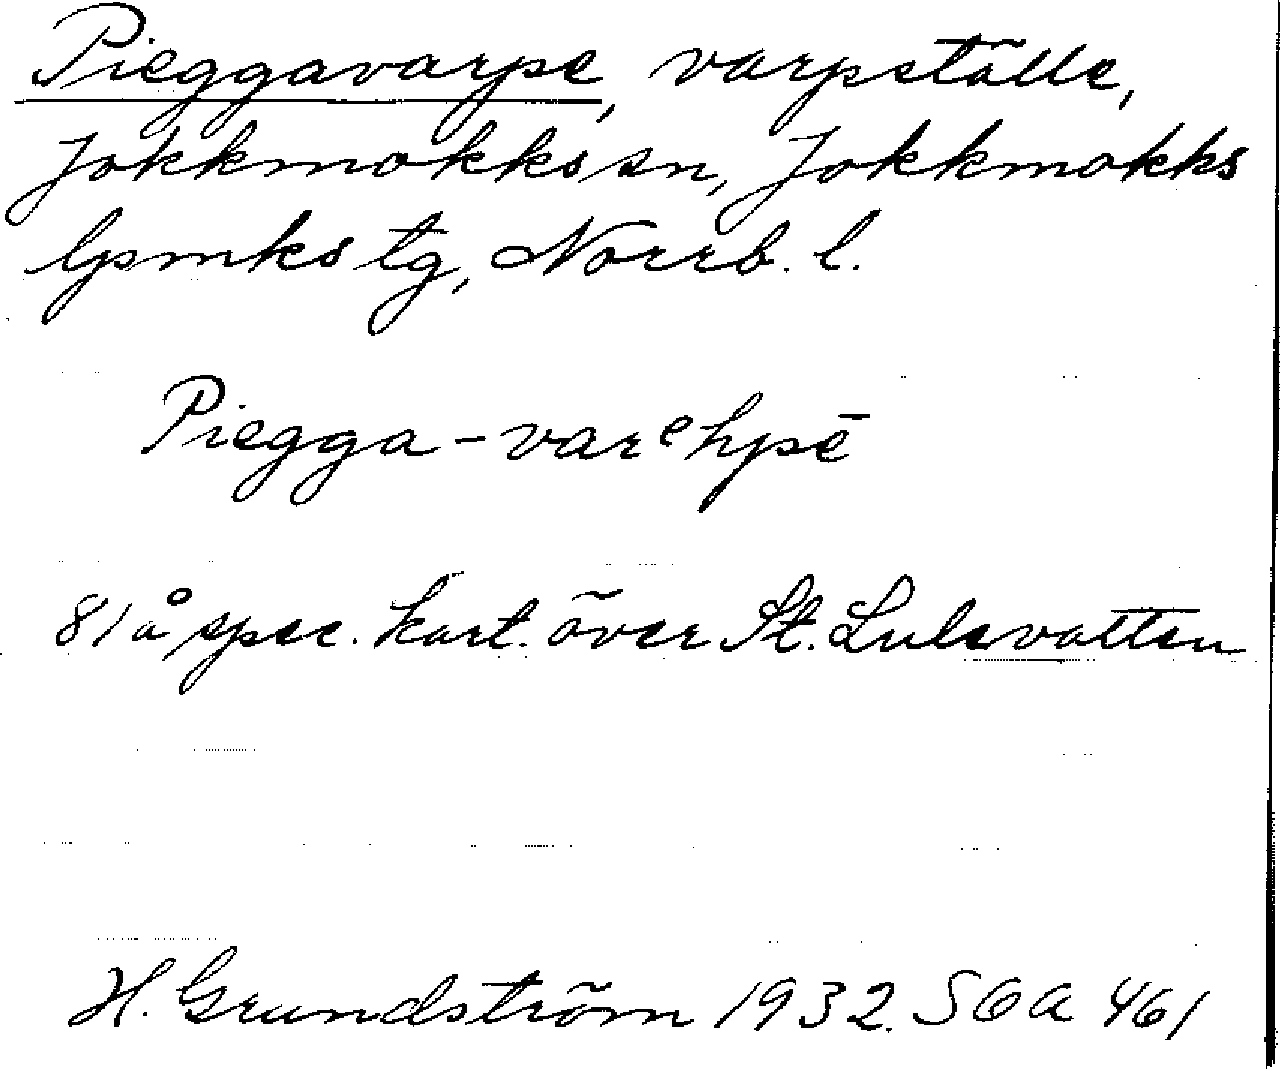 Pieggavarpe, varpställe,
Jokkmokks sn, Jokkmokks
lpmks tg, Norrb. l.
Piegga-varᵉhpē
81 å spec. kart. över St. Lulevatten
H. Grundström 1932. SOA 461